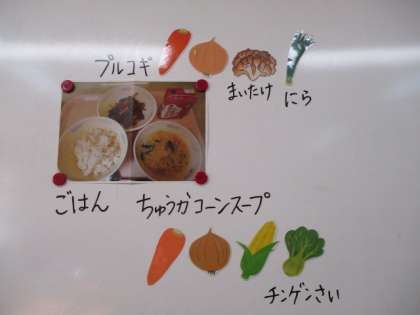 プルコギ
まいたけ
にら
ごはん
ちゅうかコーンスープ
チンゲンさい